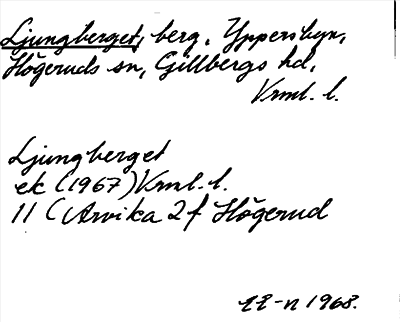 Ljungberget, berg, Yppersbyn,
Högeruds sn, Gillbergs hd,
Vrml. l.
Ljungberget
ek (1967) Vrml. l.
11 (Arvika 2f Högerud
1968.